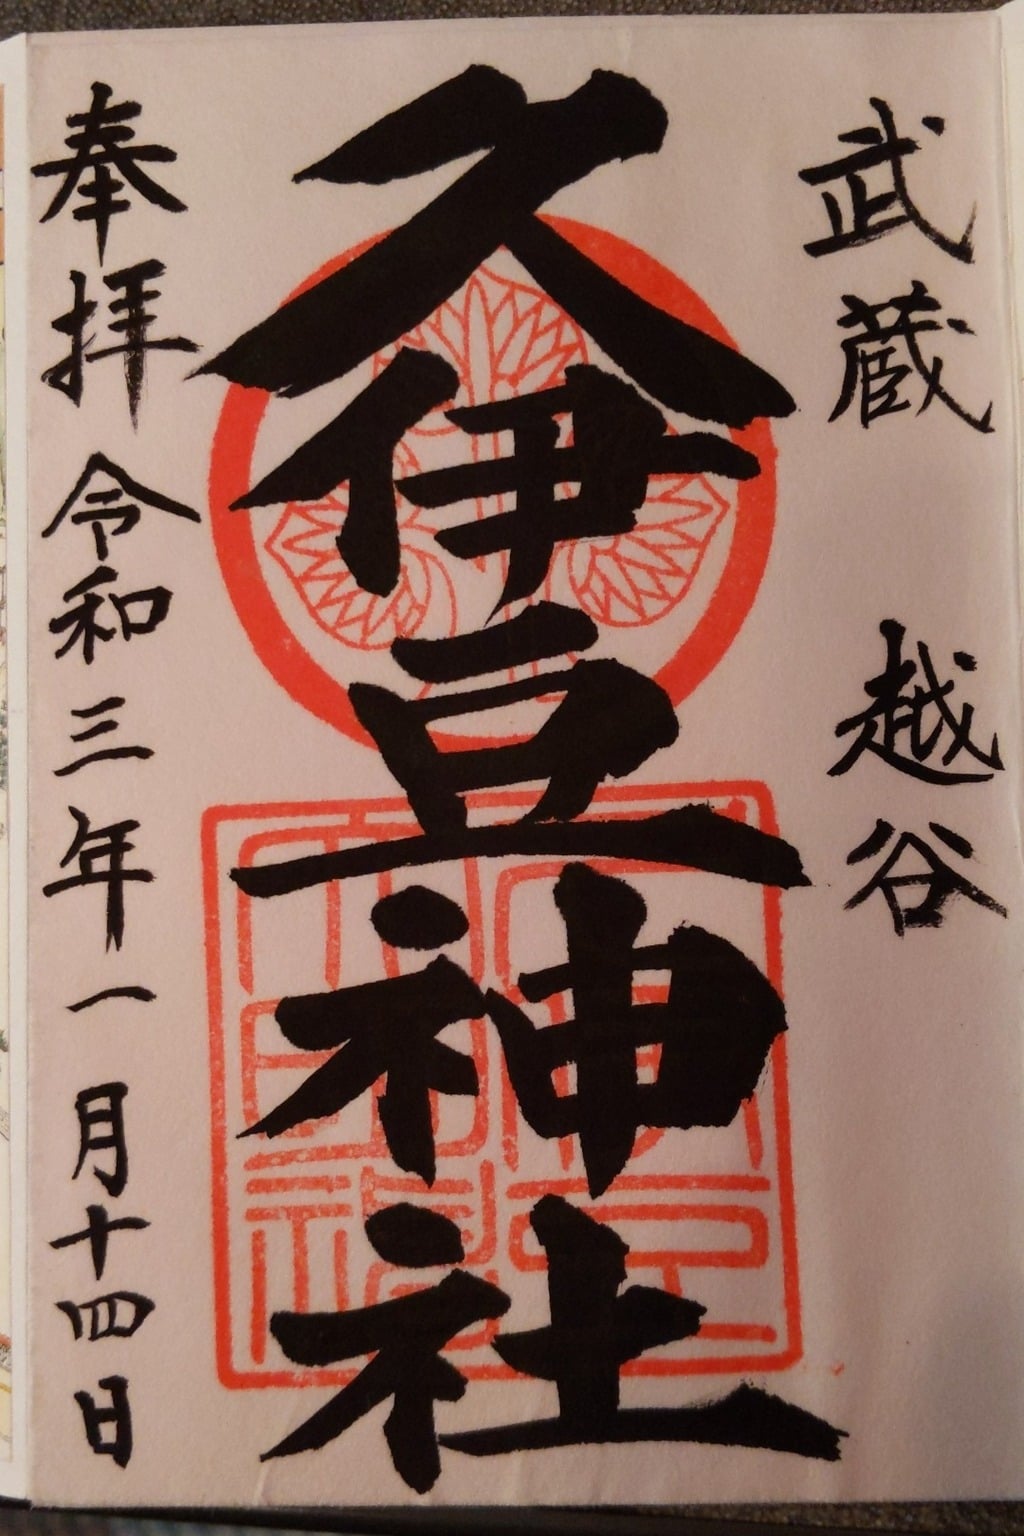 武蔵 越谷
久伊豆神社
奉拝 令和三年一月十四日